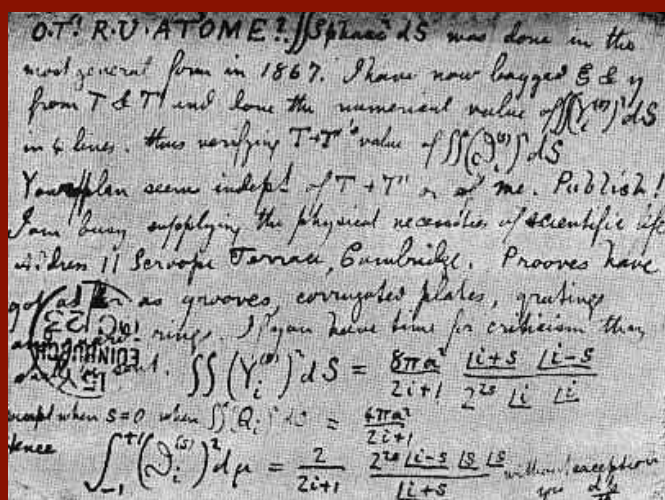 O.T! R.U. AT'OME? ∬Spharc² dS was done in the
most general form in 1867. I have now bagged ξ & η
from T & T' and done the numerical value of ∬(Y_i^(s))² dS
in 4 lines. thus verifying T+T''s value of ∬(ϑ_i^(s))² dS
Your plan seems indept of T+T' or of me. Publish!
I am busy supplying the physical necessities of scientific life
Address 11 Scroope Terrace, Cambridge. Prooves have
got as far as grooves, corrugated plates, gratings
rings. If you have time for criticism they
sent. ∬(Y_i^(s))² dS = 8πa²/(2i+1) · ⌊i+s ⌊i-s / (2^(2s) ⌊i ⌊i)
except when s=0 when ∬(Q_i)² dS = 4πa²/(2i+1)
hence
∫_{-1}^{+1} (ϑ_i^(s))² dμ = 2/(2i+1) · 2^(2s) ⌊i-s ⌊s ⌊s / ⌊i+s without exception
EDINBURGH
yrs